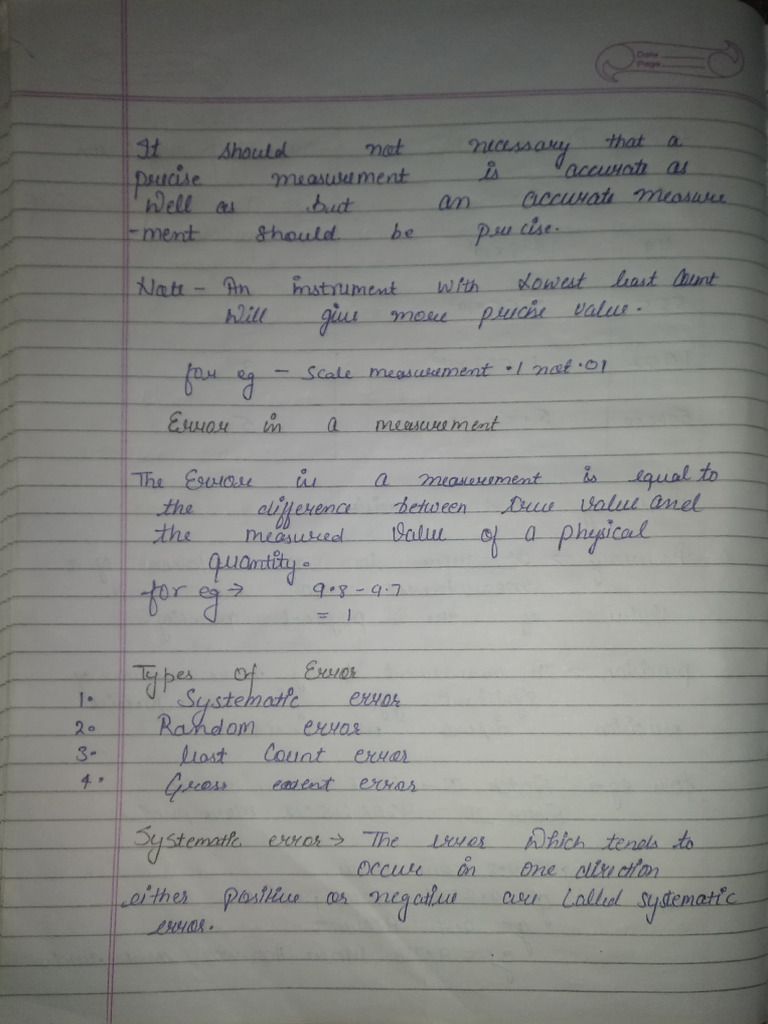 Date
Page
It should not necessary that a
precise measurement is accurate as
well as but an accurate measure
-ment should be precise.
Note - An instrument with Lowest least Count
Will give more precise value.
for eg - Scale measurement .1 not .01
Error in a measurement
The Error in a measurement is equal to
the difference between true value and
the measured value of a physical
quantity.
for eg → 9.8 - 9.7
= 1
Types of Error
1. Systematic error
2. Random error
3. least Count error
4. Gross error
Systematic error → The error which tends to
occur in one direction
either positive or negative are called systematic
error.